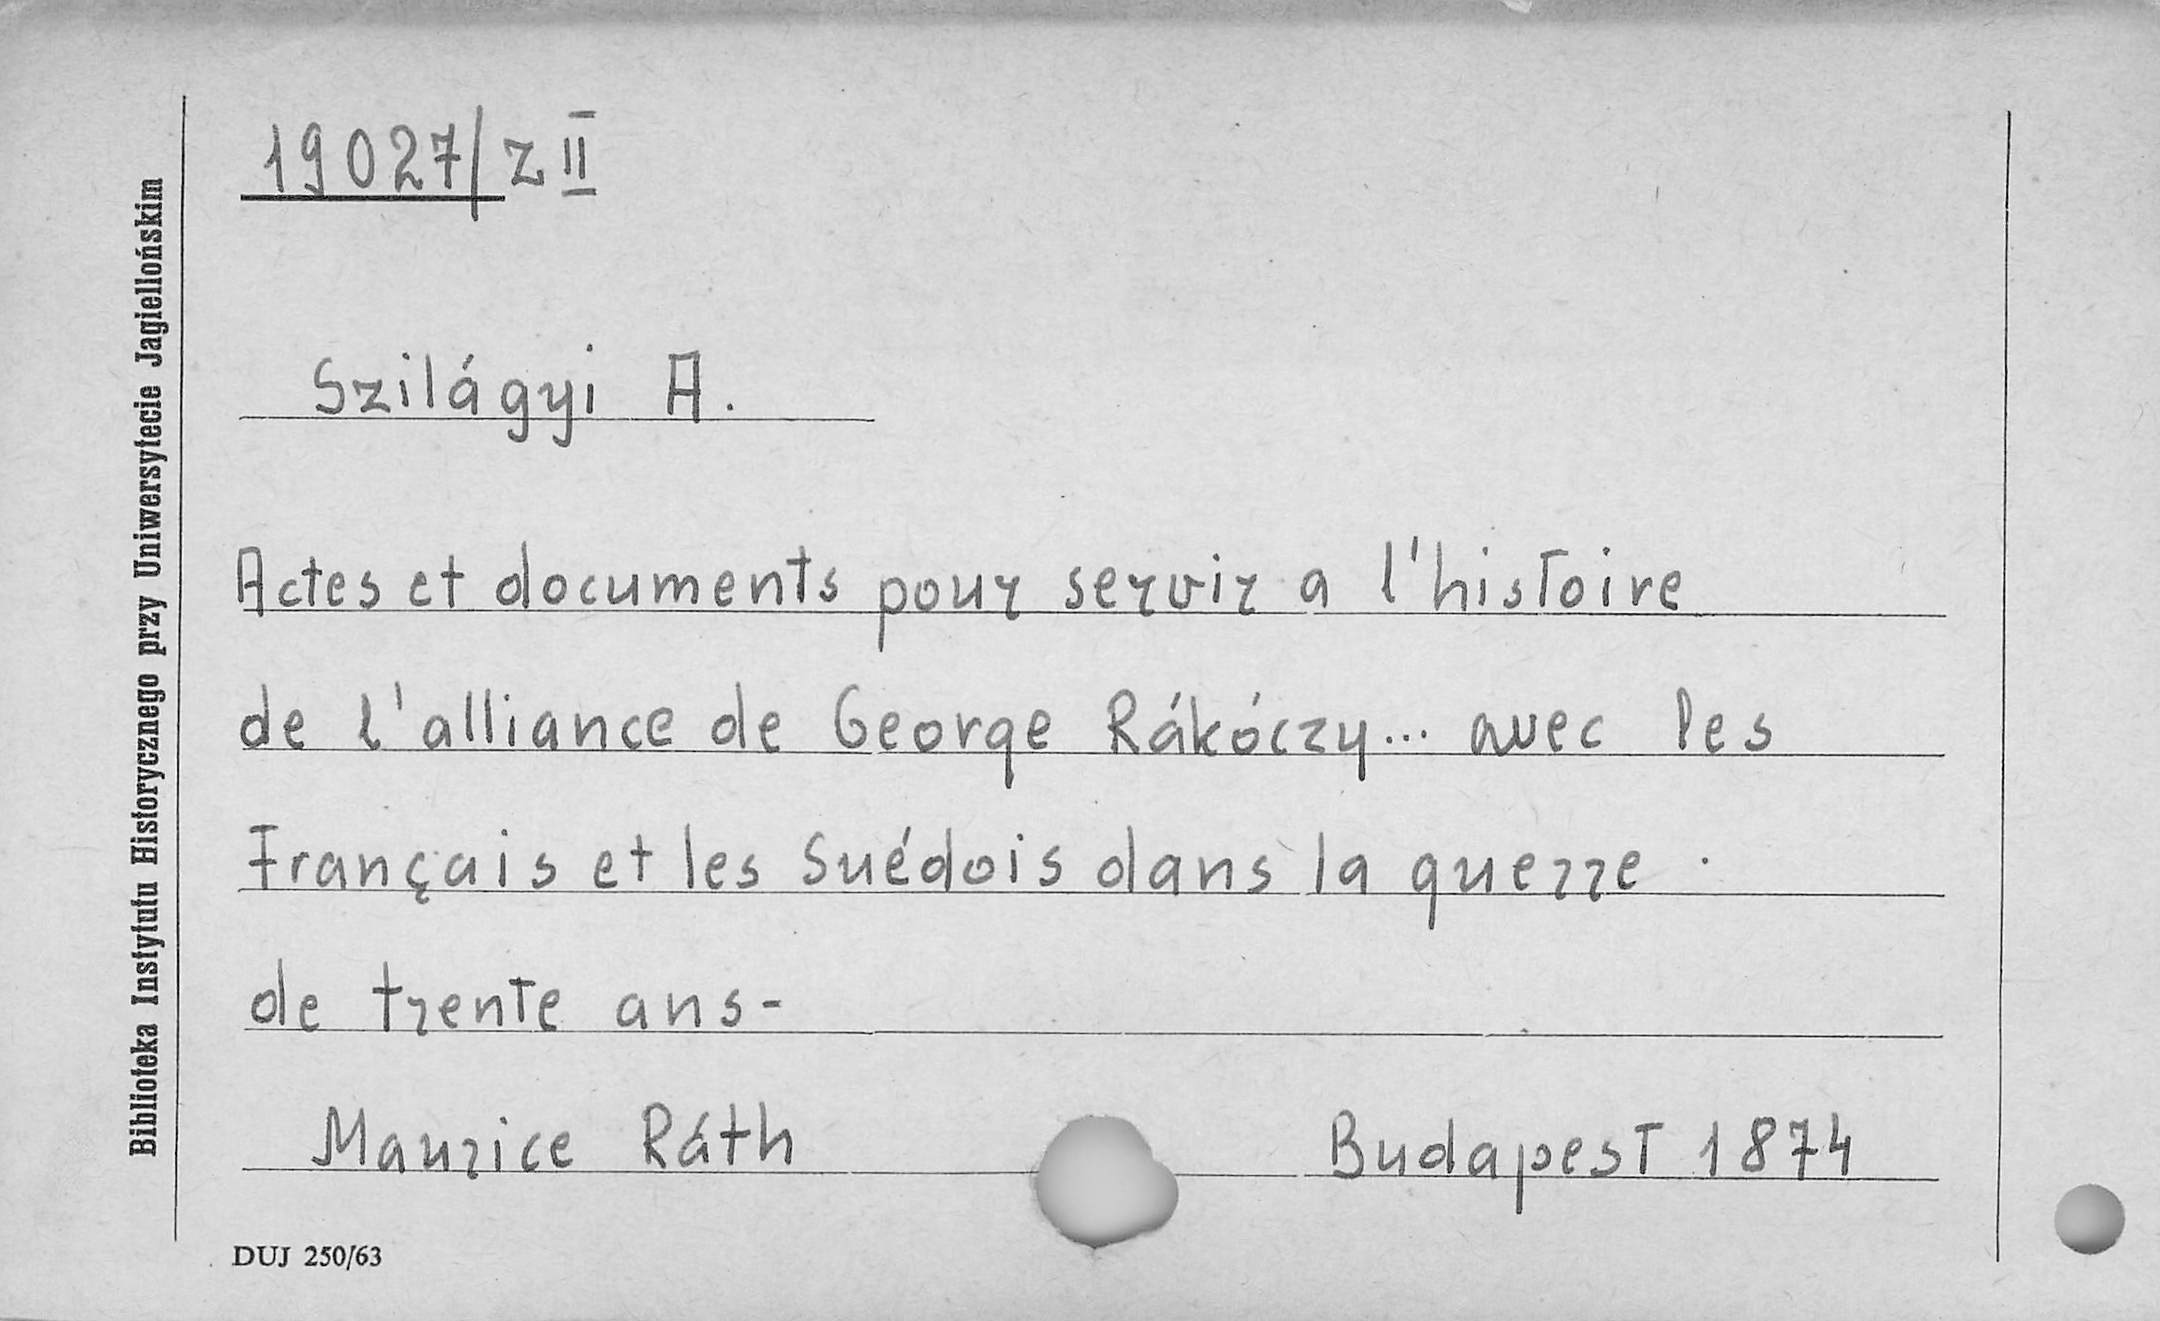 19027/Z II
Szilágyi A.
Actes et documents pour servir a l'histoire
de l'alliance de George Rákóczy... avec les
Français et les Suédois dans la guerre
de trente ans-
Maurice Ráth Budapest 1874
DUJ 250/63
Biblioteka Instytutu Historycznego przy Uniwersytecie Jagiellońskim